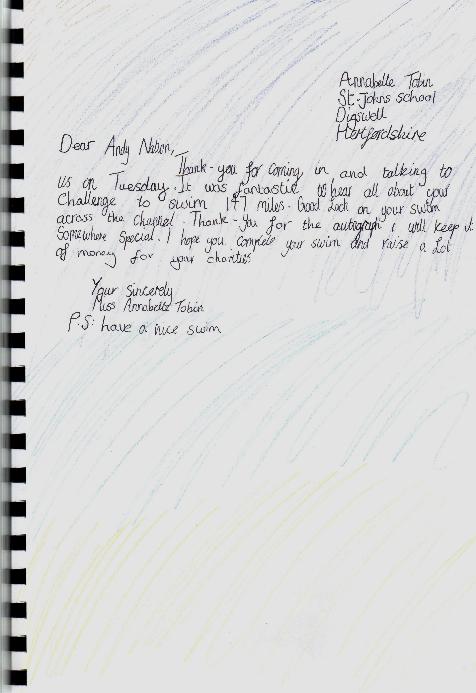 Annabelle Tobin
St. Johns school
Digswell
Hertfordshire
Dear Andy Nation,
Thank-you for coming in and talking to
us on Tuesday. It was fantastic to hear all about your
challenge to swim 147 miles. Good Luck on your swim
across the Channel. Thank-You for the autograph i will keep it
Somewhere Special. I hope you complete your swim and raise a Lot
of money for your charities
Your Sincerely
Miss Annabelle Tobin
P.S: have a nice swim